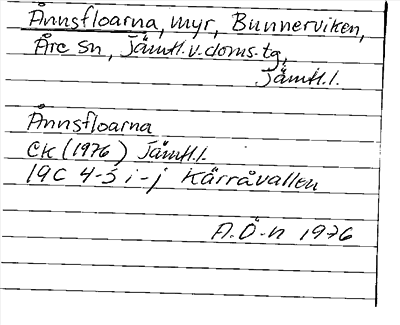 Ånnsfloarna, myr, Bunnerviken,
Åre sn, Jämtl.v.doms.tg,
Jämtl.l.
Ånnsfloarna
EK (1976) Jämtl.l.
19C 4-5 i-j Kärråvallen
A.Ö-n 1976